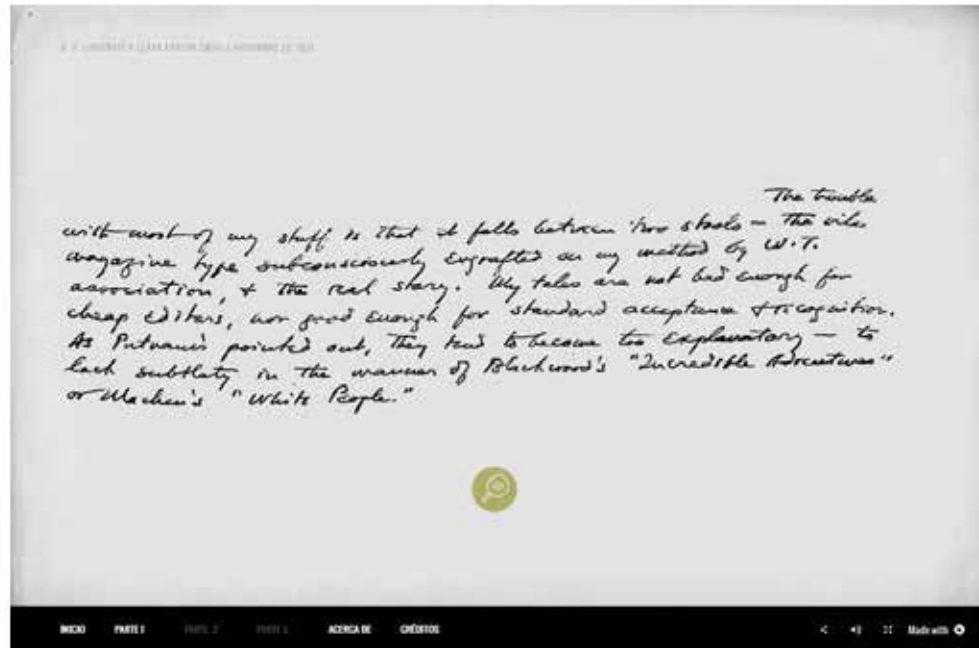 H. P. LOVECRAFT A CLARK ASHTON SMITH, NOVIEMBRE 20, 1931
The trouble
with most of my stuff is that it falls between two stools — the vile
magazine type subconsciously engrafted on my method by W.T.
association, & the real story. My tales are not bad enough for
cheap editors, nor good enough for standard acceptance & recognition.
As Putnam's pointed out, they tend to become too explanatory — to
lack subtlety in the manner of Blackwood's "Incredible Adventures"
or Machen's "White People."
INICIO PARTE 1 PARTE 2 PARTE 3 ACERCA DE CRÉDITOS Made with